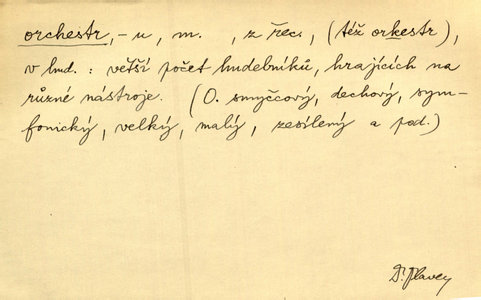 orchestr, -u, m., z řec., (též orkestr),
v hud.: větší počet hudebníků, hrajících na
různé nástroje. (O. smyčcový, dechový, sym-
fonický, velký, malý, zesílený a pod.)
Dr. Plavec